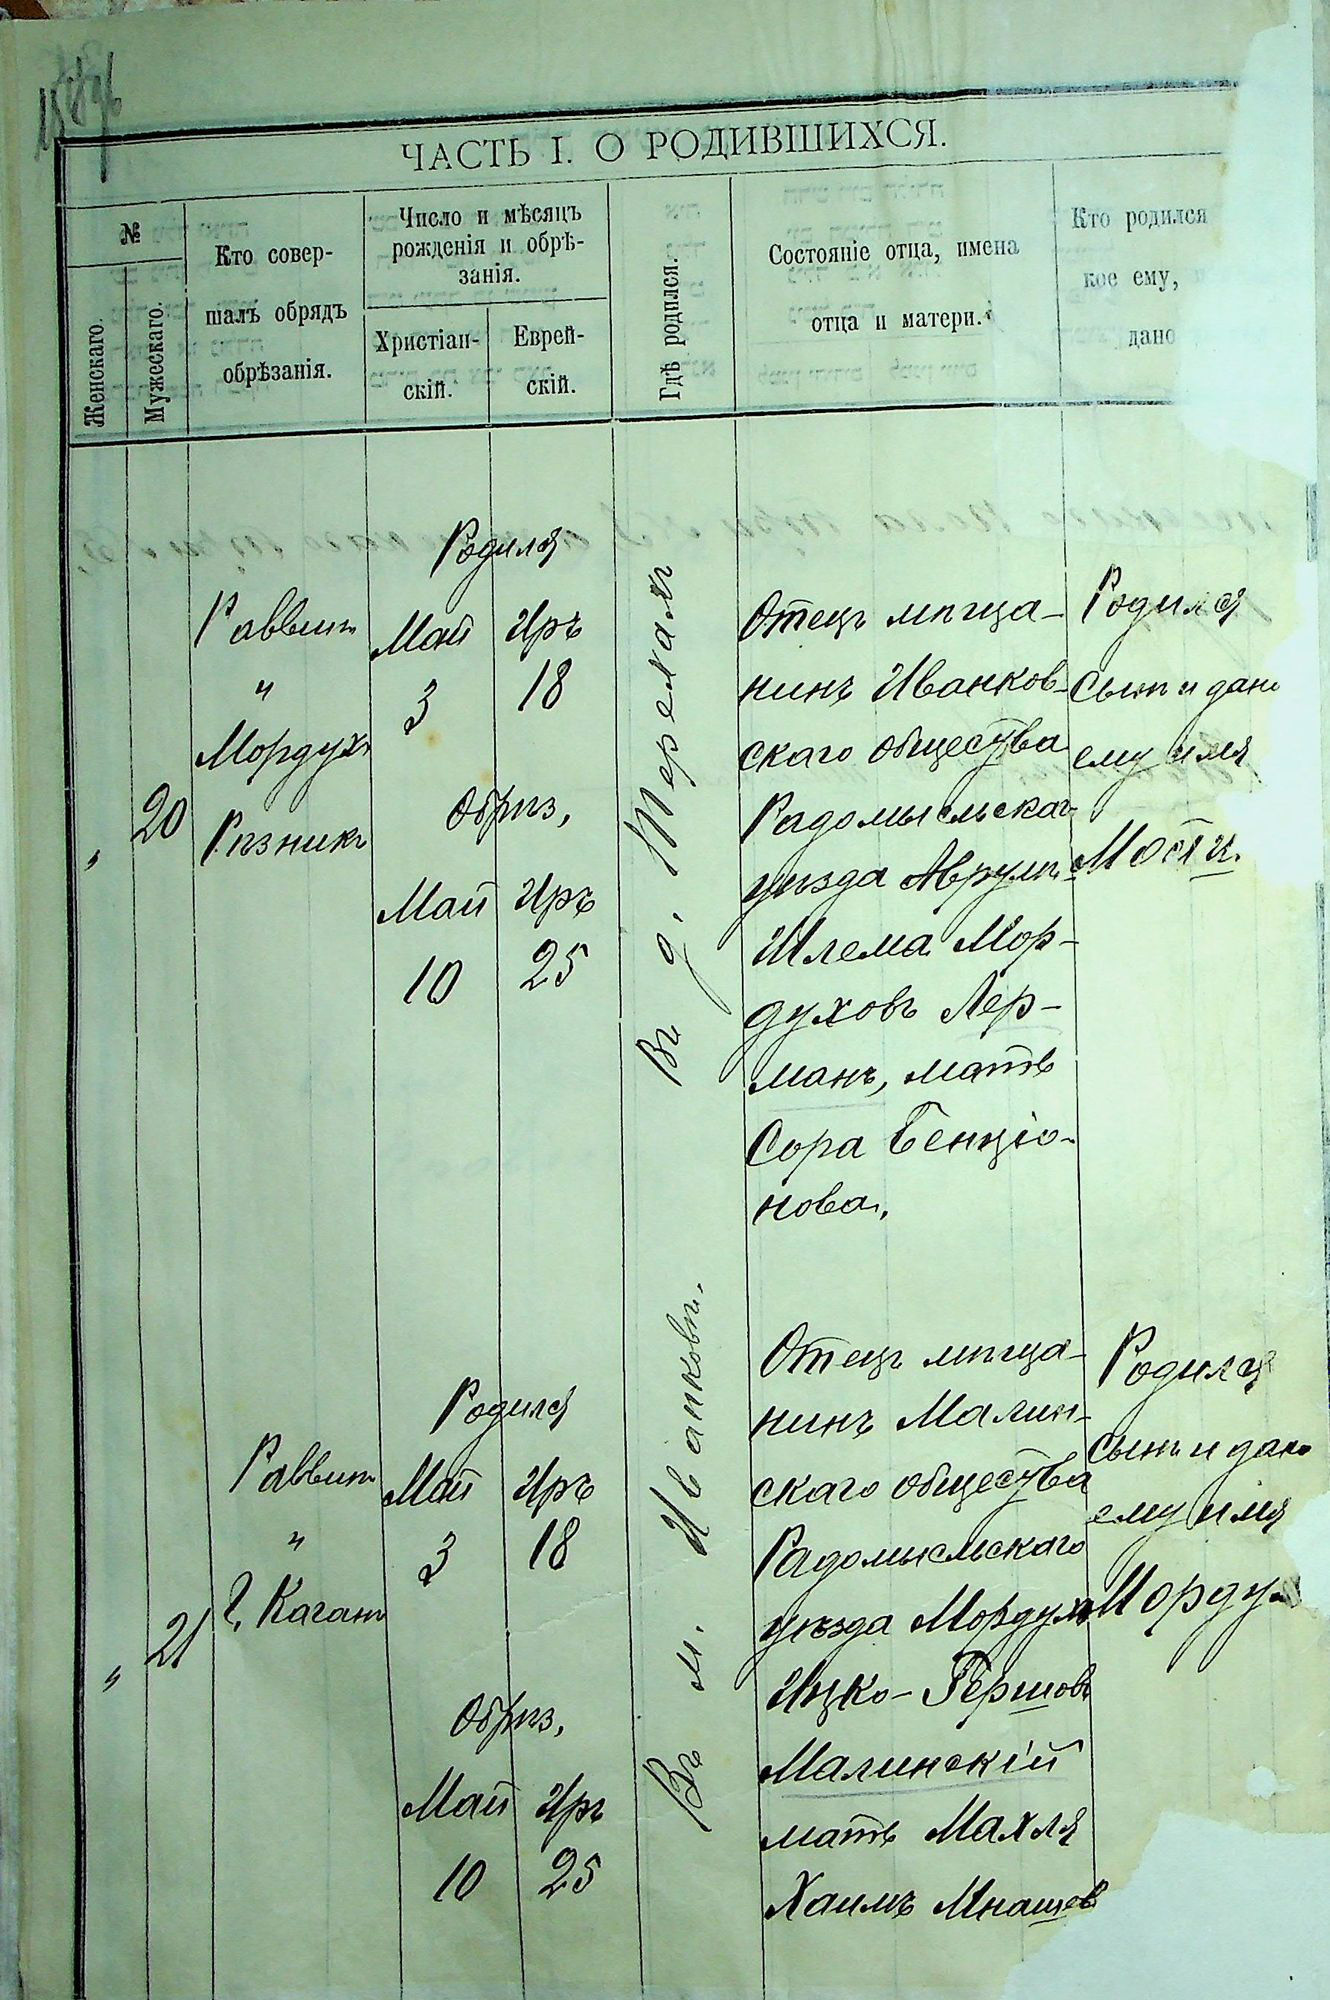 ЧАСТЬ I. О РОДИВШИХСЯ.
№
Женскаго.
Мужескаго.
Кто совер-
шалъ обрядъ
обрѣзанія.
Число и мѣсяцъ
рожденія и обрѣ-
занія.
Христіан-
скій.
Еврей-
скій.
Гдѣ родился.
Состояніе отца, имена
отца и матери.
Кто родился
кое ему,
дано
"
20
Раввинъ
"
Мордухъ
Рѣзникъ
Родился
Май Иръ
3 18
Обрѣз.
Май Иръ
10 25
Въ д. Термахъ
Отецъ мѣща-
нинъ Иванков-
скаго общества
Радомысльскаго
уѣзда Аврумъ
Шлема Мор-
духовъ Лер-
манъ, мать
Сора Бенціо-
нова.
Родился
сынъ и дано
ему имя
"
21
Раввинъ
"
Г. Каганъ
Родился
Май Иръ
3 18
Обрѣз.
Май Иръ
10 25
Въ м. Иванковѣ.
Отецъ мѣща-
нинъ Малин-
скаго общества
Радомысльскаго
уѣзда Мордухъ
Ицко-Гершовъ
Малинскій
мать Махля
Хаимъ Мнашев
Родился
сынъ и дано
ему имя
Морду-